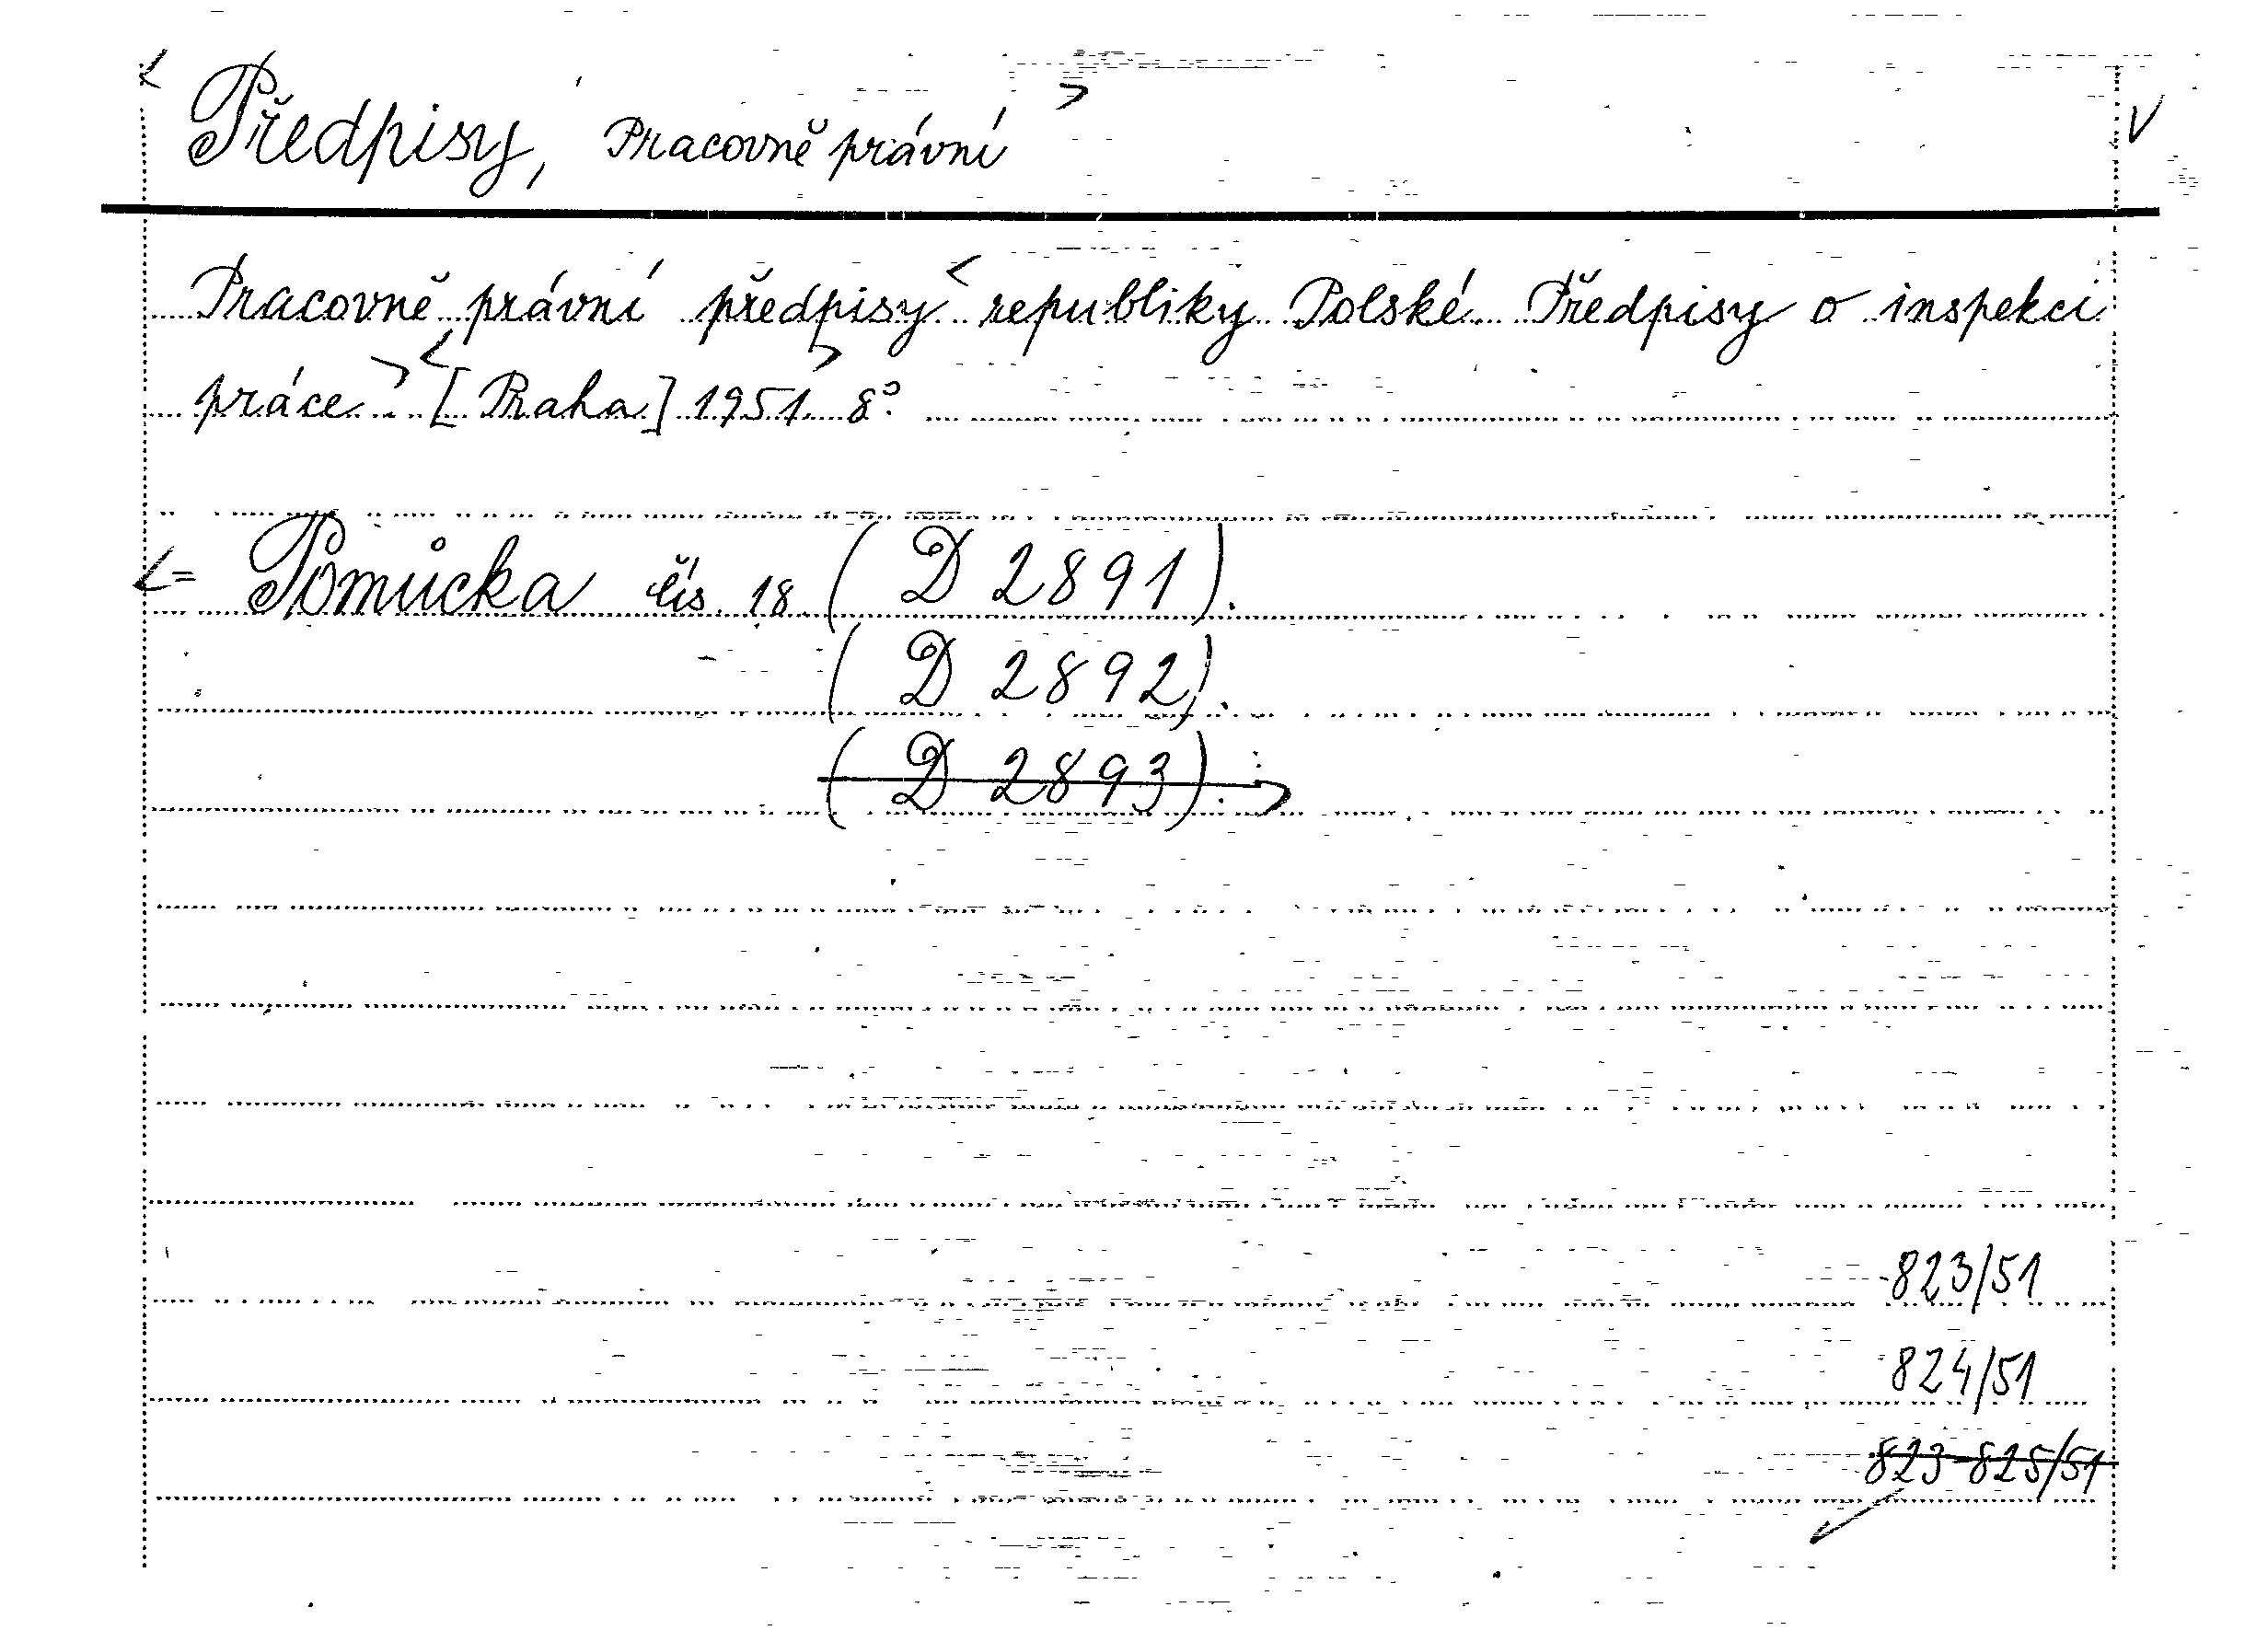 < Předpisy, Pracovně právní > V
Pracovně právní předpisy < republiky Polské Předpisy o inspekci
práce > < [Praha] 1951 > 8°.
<= Pomůcka čís. 18. (D 2891).
(D 2892).
(D 2893). >
823/51
824/51
823-825/51